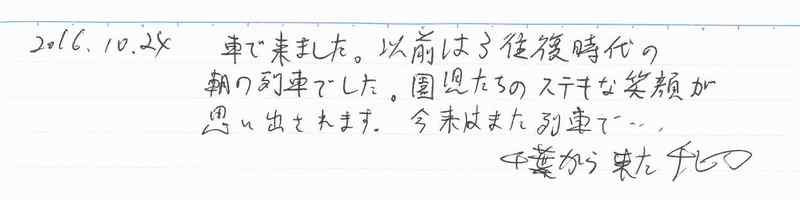 2016.10.24 車で来ました。以前は3往復時代の
朝の列車でした。園児たちのステキな笑顔が
思い出されます。今来はまた列車で…。
千葉から来た チヒロ